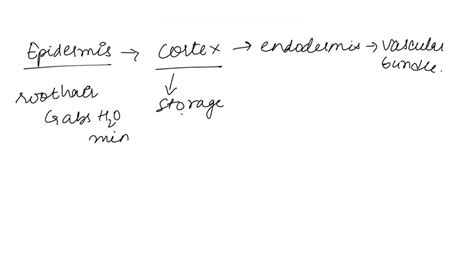 Epidermis → cortex → endodermis → vascular bundle.
root hair
↳ abs H₂O
min
↓
storage